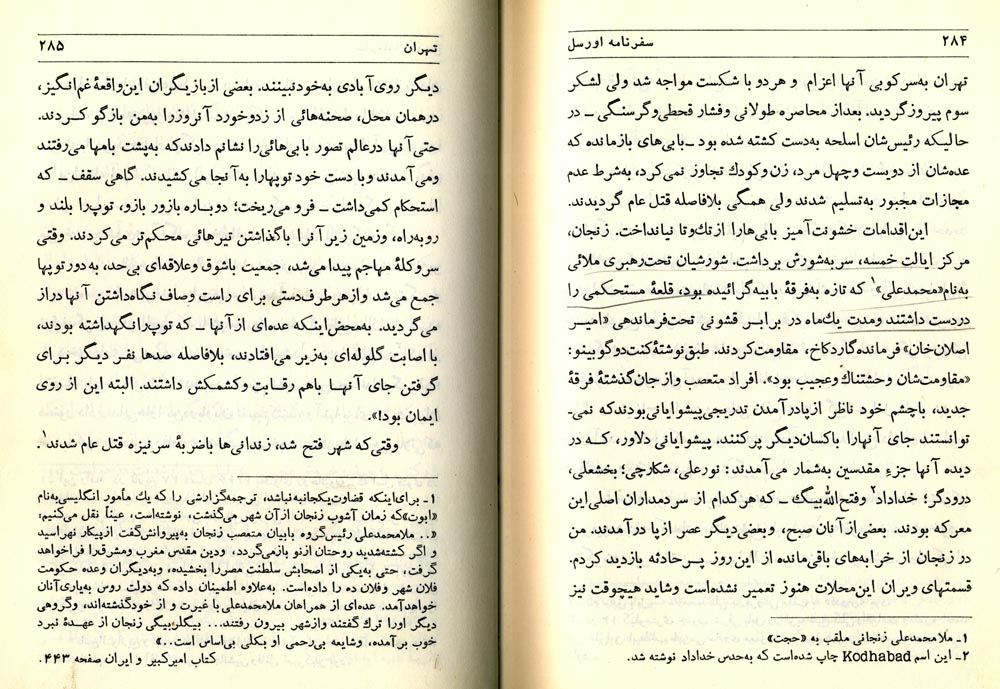 ۲۸۴
سفرنامه اورسل
تهران به‌سرکوبی آنها اعزام و هردو با شکست مواجه شد ولی لشکر
سوم پیروزگردید. بعداز محاصره طولانی وفشار قحطی‌وگرسنگی ـ در
حالیکه رئیس‌شان اسلحه به‌دست کشته شده بود ـ بابی‌های بازمانده که
عده‌شان از دویست وچهل مرد، زن‌وکودك تجاوز نمی‌کرد، به‌شرط عدم
مجازات مجبور به‌تسلیم شدند ولی همگی بلافاصله قتل عام گردیدند.
این‌اقدامات خشونت‌آمیز بابی‌هارا ازتك‌وتا نیانداخت. زنجان،
مرکز ایالت خمسه، سربه‌شورش برداشت. شورشیان تحت‌رهبری ملائی
به‌نام«محمدعلی»۱ که تازه به‌فرقۀ بابیه‌گرائیده بود، قلعۀ مستحکمی را
دردست داشتند ومدت یك‌ماه در برابر قشونی تحت‌فرماندهی «امیر
اصلان‌خان» فرمانده‌گارد‌کاخ، مقاومت‌کردند. طبق‌نوشتۀ‌کنت‌دوگوبینو:
«مقاومت‌شان وحشتناك‌وعجیب بود». افراد متعصب وازجان‌گذشتۀ فرقۀ
جدید، باچشم خود ناظر ازپادرآمدن تدریجی‌پیشوایانی‌بودندکه نمی‌ـ
توانستند جای آنهارا باکسان‌دیگر پرکنند. پیشوایانی دلاور، که در
دیده آنها جزءِ مقدسین به‌شمار می‌آمدند: نورعلی، شکارچی؛ بخشعلی،
درودگر؛ خداداد۲ وفتح‌الله‌بیگ ـ که هرکدام از سردمداران اصلی‌این
معرکه بودند. بعضی‌ازآنان صبح، وبعضی‌دیگر عصر ازپا درآمدند. من
در زنجان از خرابه‌های باقی‌مانده از این‌روز پرحادثه بازدید کردم.
قسمتهای ویران این‌محلات هنوز تعمیر نشده‌است وشاید هیچوقت نیز
۱ـ ملامحمدعلی زنجانی ملقب به «حجت»
۲ـ این اسم Kodhabad چاپ شده‌است که به‌حدس خداداد نوشته شد.
تهران
۲۸۵
دیگر روی‌آبادی به‌خودنبینند. بعضی ازبازیگران این‌واقعۀ غم‌انگیز،
درهمان محل، صحنه‌هائی از زدوخورد آنروزرا به‌من بازگو کردند.
حتی‌آنها درعالم تصور بابی‌هائی‌را نشانم دادندکه به‌پشت بامها می‌رفتند
ومی‌آمدند وبا دست خود توپهارا به‌آنجا می‌کشیدند. گاهی سقف ـ که
استحکام کمی‌داشت ـ فرو می‌ریخت؛ دوباره بازور بازو، توپ‌را بلند و
روبه‌راه، وزمین زیرآنرا باگذاشتن تیرهائی محکم‌تر می‌کردند. وقتی
سروکلۀ مهاجم پیدا می‌شد، جمعیت باشوق وعلاقه‌ای بی‌حد، به‌دورتوپها
جمع می‌شد وازهرطرف‌دستی برای راست وصاف نگاه‌داشتن آنها دراز
می‌گردید. به‌محض‌اینکه عده‌ای ازآنها ـ که توپ‌رانگهداشته بودند،
با اصابت گلوله‌ای به‌زیر می‌افتادند، بلافاصله صدها نفر دیگر برای
گرفتن جای آنها باهم رقابت وکشمکش داشتند. البته این از روی
ایمان بود!».
وقتی‌که شهر فتح شد، زندانی‌ها باضربۀ سرنیزه قتل عام شدند۱.
۱ـ برای‌اینکه قضاوت‌یکجانبه‌نباشد، ترجمه‌گزارشی را که یك مأمور انگلیسی‌به‌نام
«ابوت»که زمان آشوب زنجان ازآن شهر می‌گذشت، نوشته‌است، عیناً نقل می‌کنیم:
«.. ملامحمدعلی رئیس‌گروه بابیان متعصب زنجان به‌پیروانش‌گفت ازپیکار نهراسید
و اگر کشته‌شدید روحتان ازنو بازمی‌گردد، ودین مقدس مغرب ومشرق‌را فراخواهد
گرفت، حتی به‌یکی از اصحابش سلطنت مصررا بخشیده، وبه‌دیگران وعده حکومت
فلان شهر وفلان ده را داده‌است. به‌علاوه اطمینان داده که دولت روس به‌یاری‌آنان
خواهدآمد. عده‌ای از همراهان ملامحمدعلی با غیرت و از خودگذشته‌اند، وگروهی
دیگر اورا ترك گفتند وازشهر بیرون رفتند... بیگلربیگی زنجان از عهدۀ نبرد
خوب برآمده، وشایعه بی‌رحمی او بکلی بی‌اساس است..»
کتاب امیرکبیر و ایران صفحه ۴۴۳.